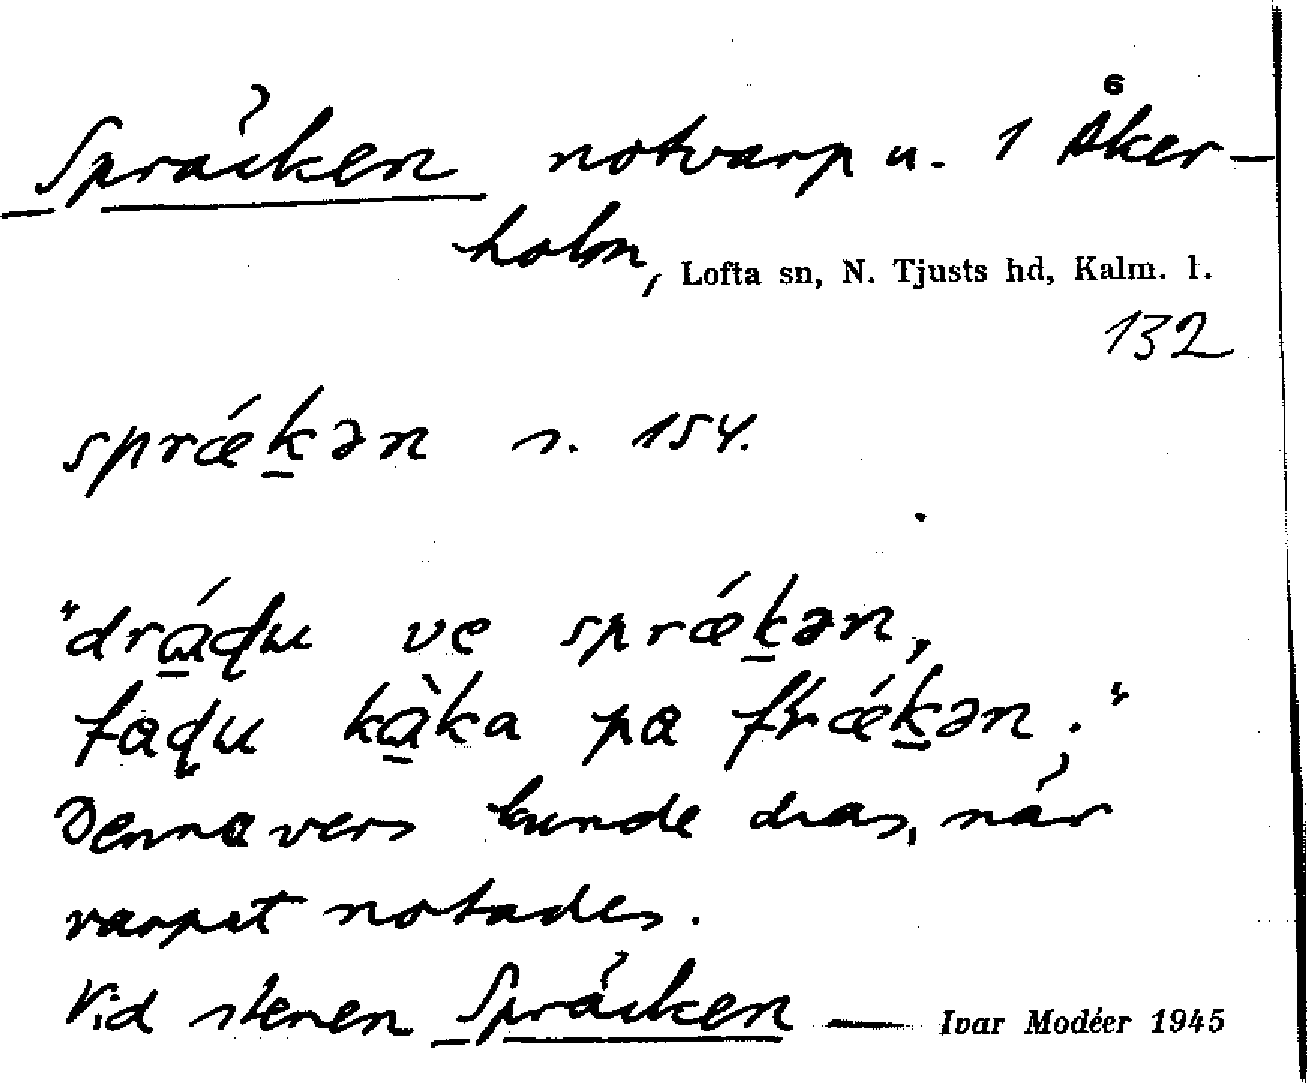 6
Spräcken notvarp u. 1 Åker-
holm, Lofta sn, N. Tjusts hd, Kalm. l.
132
sprǽḵən s. 154.
"drá̱ɖu ve sprǽḵən,
faɖu kà̱ka pa frǽḵən;"
Denna vers kunde dras, när
varpet notades.
Vid stenen Spräcken — Ivar Modéer 1945